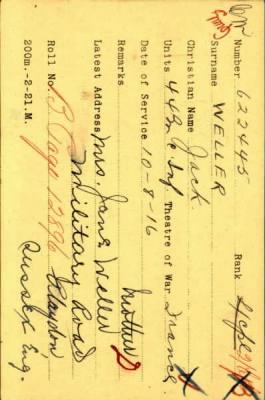 Number 622445 Rank A/Cpl
Surname WELLER
Christian Name Jack
Units 44th C. Inf Theatre of War France
Date of Service 10-8-16
Remarks
Latest Address Mrs. Jane Weller Mother
Military Road
Rye
Sussex Eng.
Roll No. B Page 12896
200m.-2-21.M.